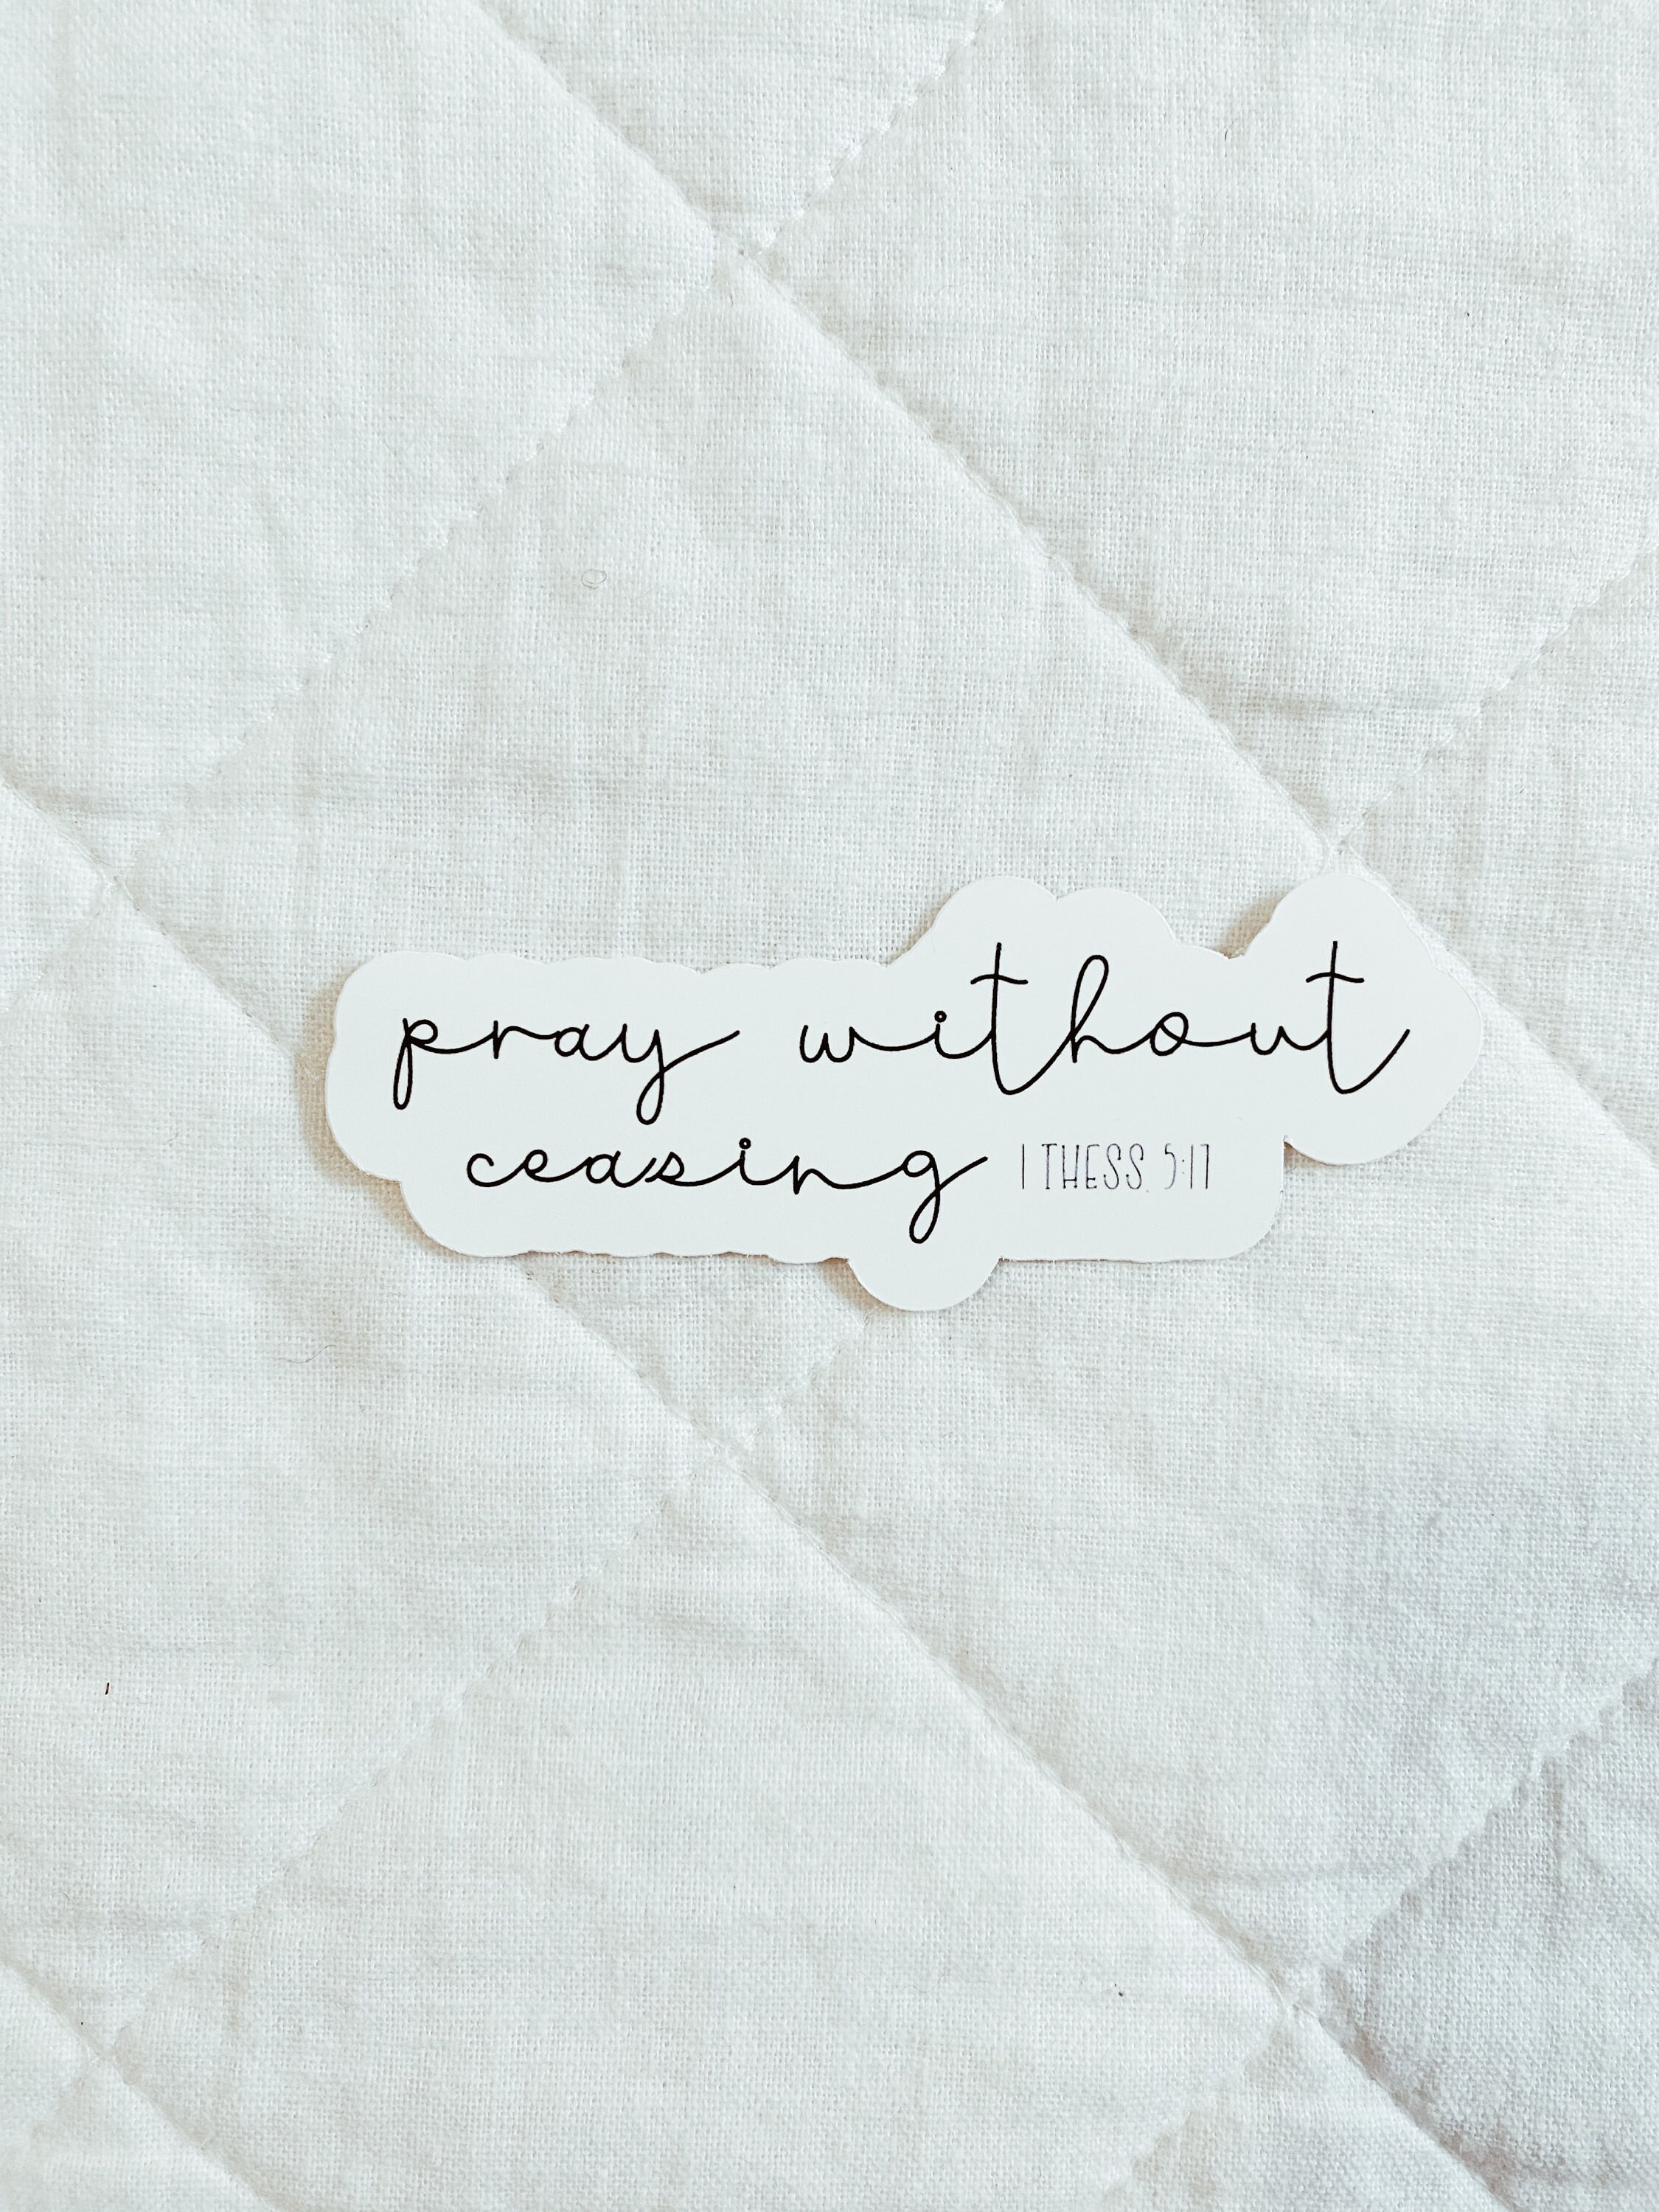 pray without
ceasing 1 THESS. 5:17